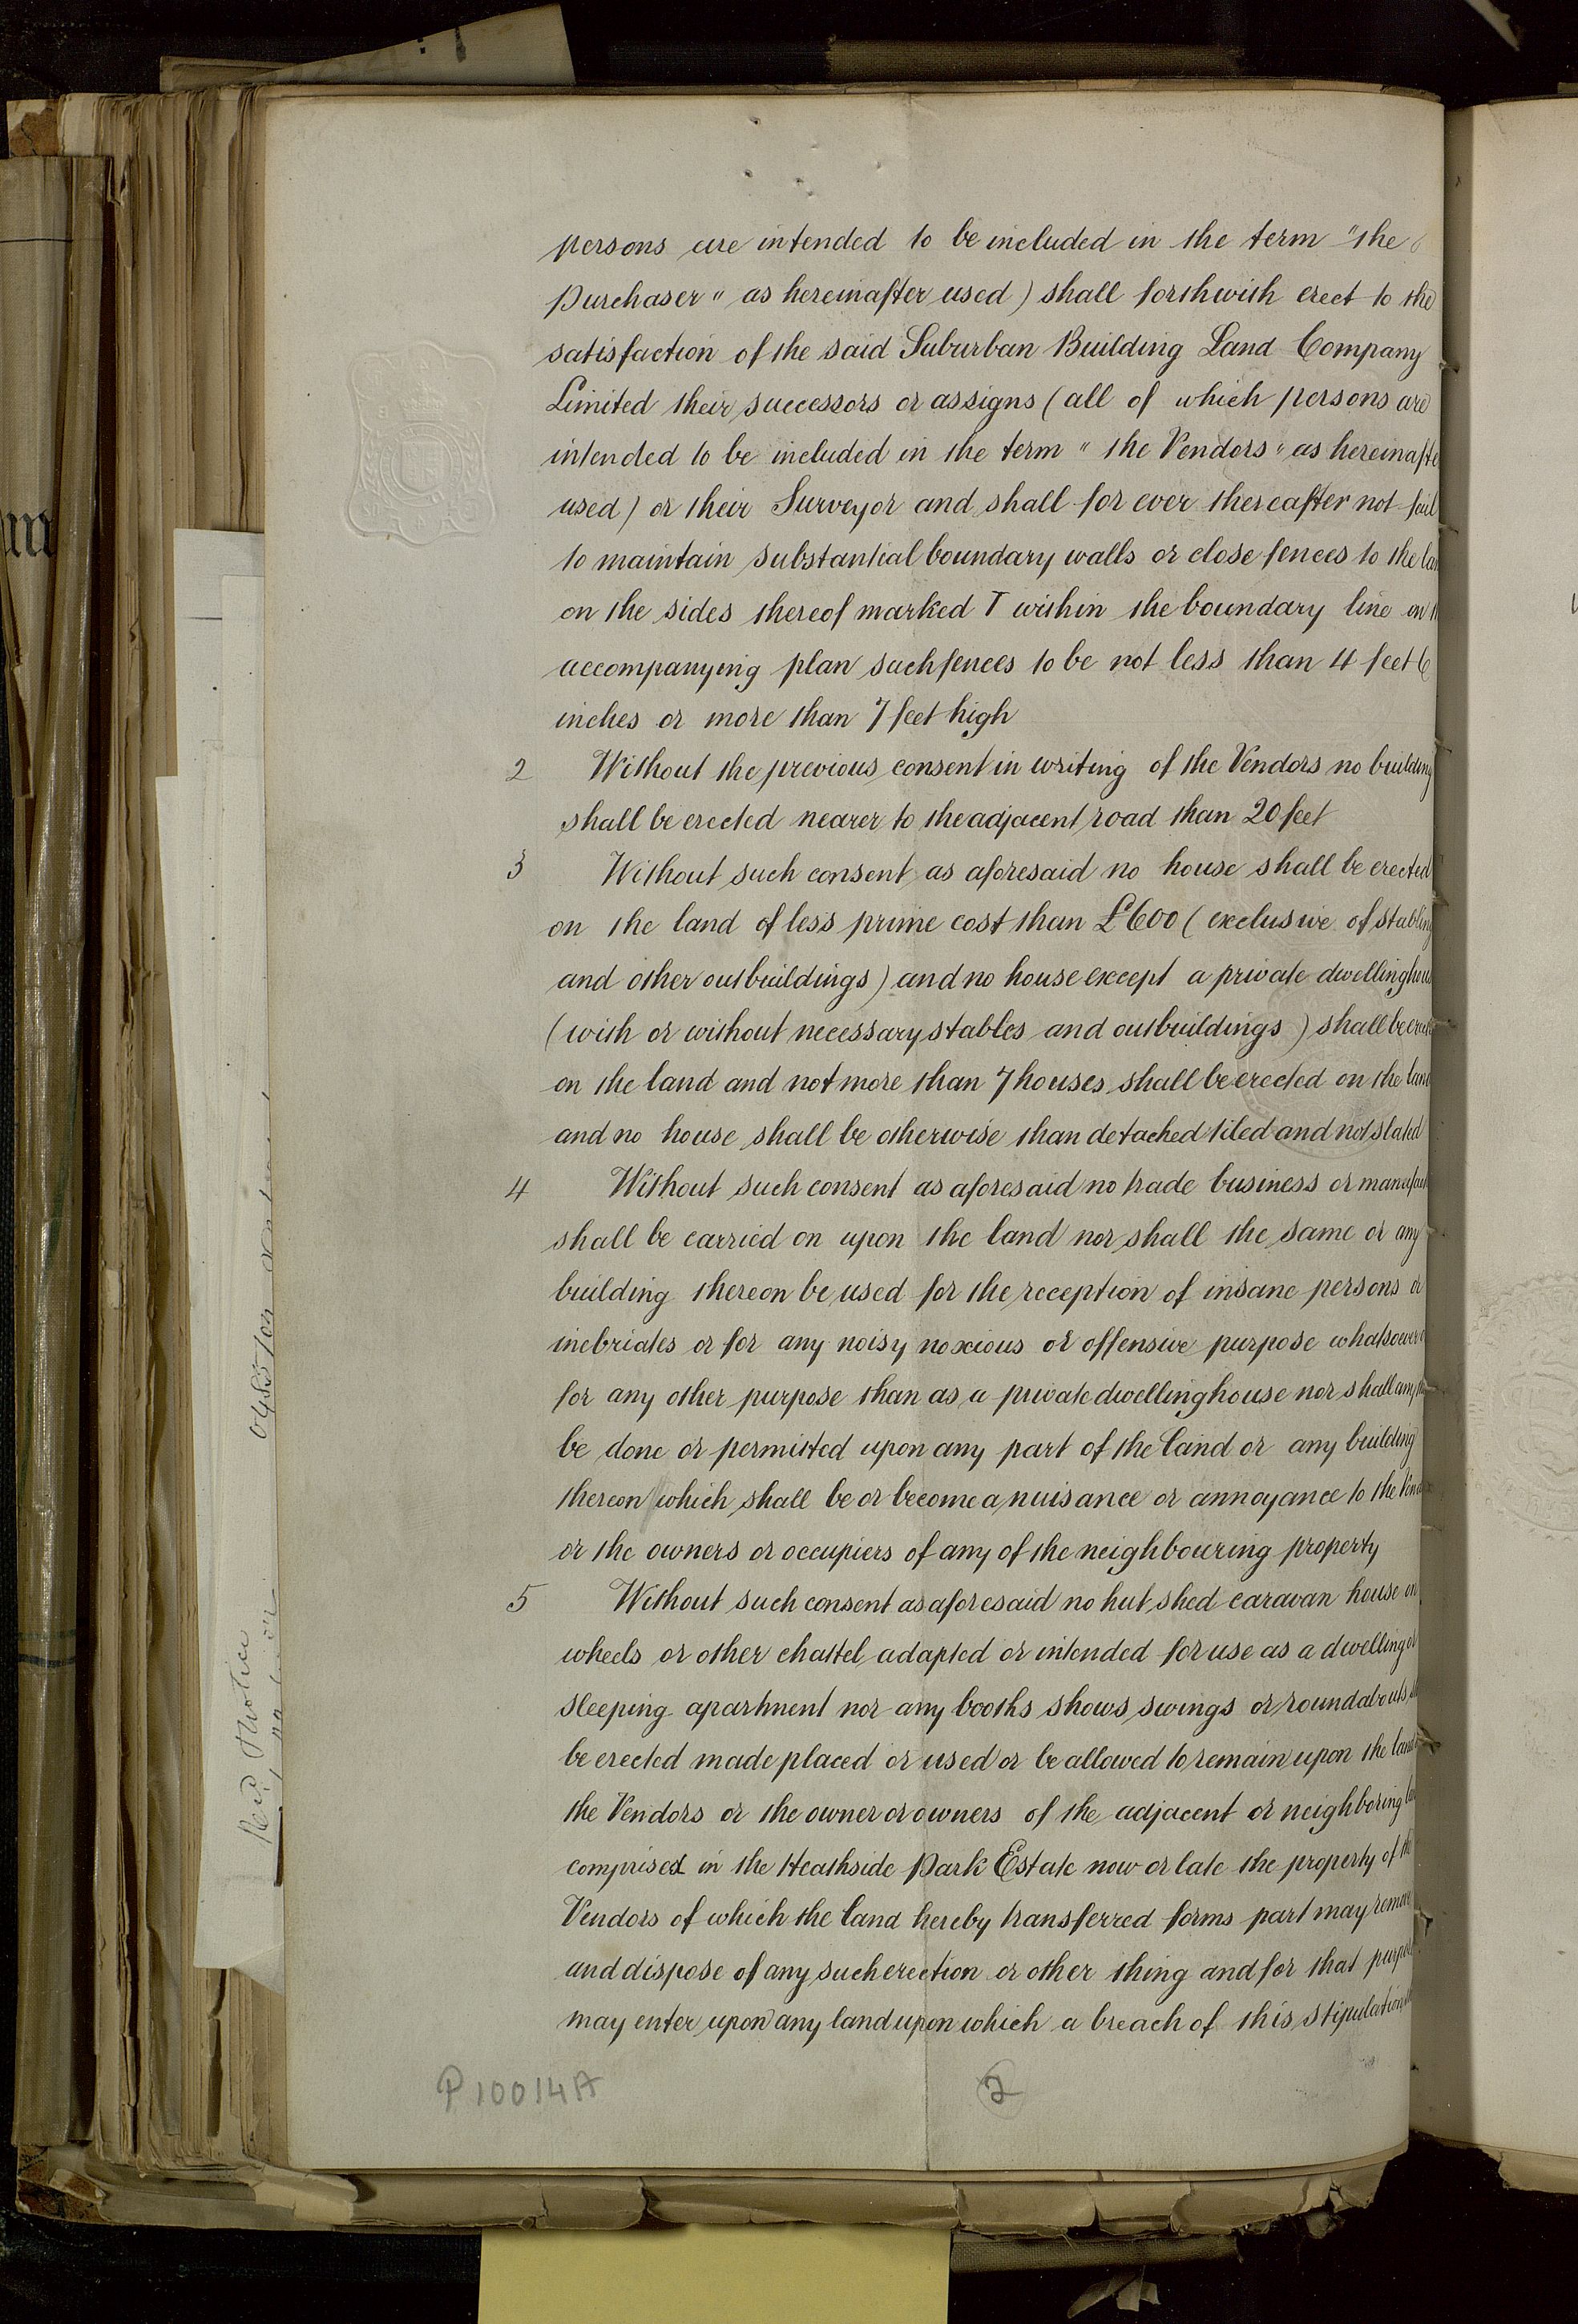 persons are intended to be included in the term "the
Purchaser" as hereinafter used) shall forthwith erect to the
satisfaction of the said Suburban Building Land Company
Limited their successors or assigns (all of which persons are
intended to be included in the term "the Vendors" as hereinafte
used) or their Surveyor and shall for ever thereafter not fail
to maintain substantial boundary walls or close fences to the lan
on the sides thereof marked T within the boundary line on
accompanying plan such fences to be not less than 4 feet 6
inches or more than 7 feet high
2 Without the previous consent in writing of the Vendors no building
shall be erected nearer to the adjacent road than 20 feet
3 Without such consent as aforesaid no house shall be erected
on the land of less prime cost than £600 (exclusive of stabling
and other outbuildings) and no house except a private dwellinghous
(with or without necessary stables and outbuildings) shall be erecte
on the land and not more than 7 houses shall be erected on the land
and no house shall be otherwise than detached tiled and not slated
4 Without such consent as aforesaid no trade business or manufact
shall be carried on upon the land nor shall the same or any
building thereon be used for the reception of insane persons or
inebriates or for any noisy noxious or offensive purpose whatsoever
for any other purpose than as a private dwellinghouse nor shall any
be done or permitted upon any part of the land or any building
thereon which shall be or become a nuisance or annoyance to the Vendo
or the owners or occupiers of any of the neighbouring property
5 Without such consent as aforesaid no hut shed caravan house on
wheels or other chattel adapted or intended for use as a dwelling or
sleeping apartment nor any booths shows swings or roundabouts
be erected made placed or used or be allowed to remain upon the land
the Vendors or the owner or owners of the adjacent or neighboring
comprised in the Heathside Park Estate now or late the property of the
Vendors of which the land hereby transferred forms part may remove
and dispose of any such erection or other thing and for that purpo
may enter upon any land upon which a breach of this stipulation
P10014A
2